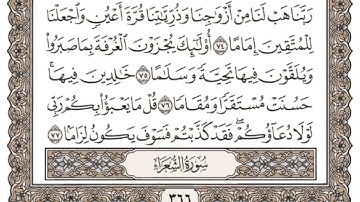 رَبَّنَا هَبْ لَنَا مِنْ أَزْوَٰجِنَا وَذُرِّيَّـٰتِنَا قُرَّةَ أَعْيُنٍ وَٱجْعَلْنَا
لِلْمُتَّقِينَ إِمَامًا ٧٤ أُو۟لَـٰٓئِكَ يُجْزَوْنَ ٱلْغُرْفَةَ بِمَا صَبَرُوا۟
وَيُلَقَّوْنَ فِيهَا تَحِيَّةً وَسَلَـٰمًا ٧٥ خَـٰلِدِينَ فِيهَا ۚ
حَسُنَتْ مُسْتَقَرًّا وَمُقَامًا ٧٦ قُلْ مَا يَعْبَؤُا۟ بِكُمْ رَبِّى
لَوْلَا دُعَآؤُكُمْ ۖ فَقَدْ كَذَّبْتُمْ فَسَوْفَ يَكُونُ لِزَامًۢا ٧٧
سُورَةُ الشُّعَرَاءِ
٣٦٦